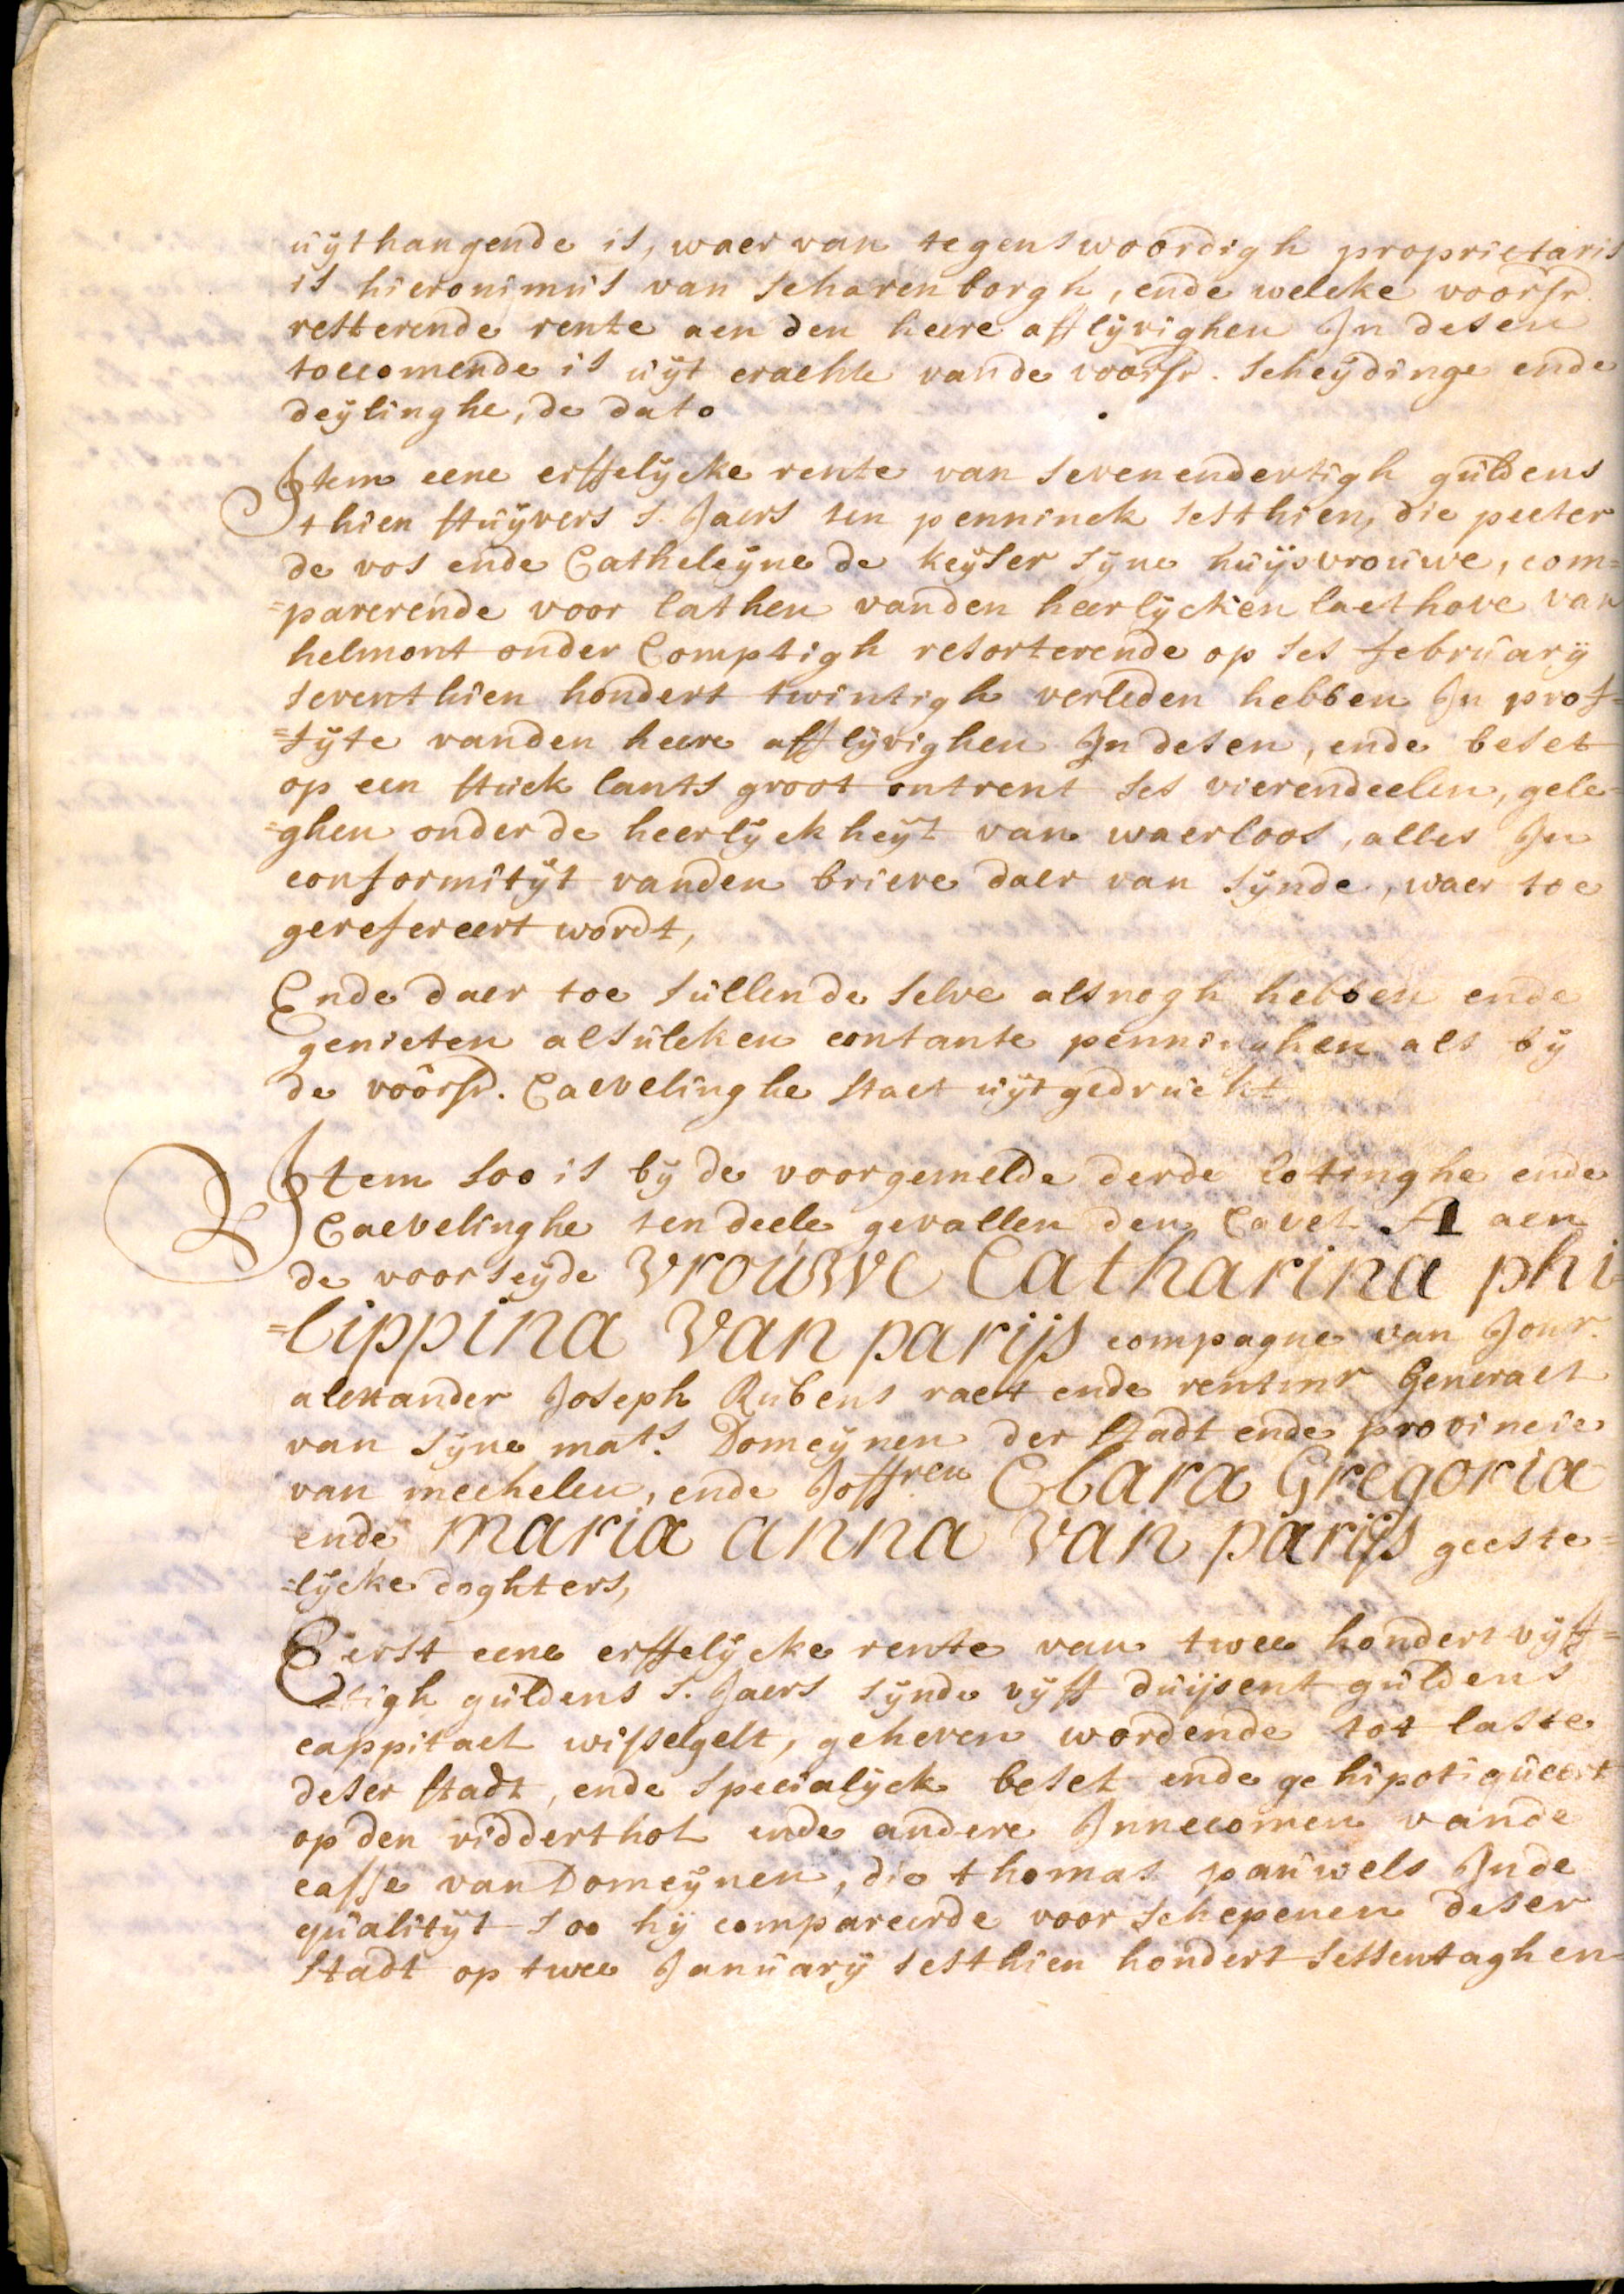 uijthangende is, waer van tegenswoordigh proprietaris
is hieronimus van scharenborgh, ende welcke voorsr.
resterende rente aen den heere afflijvighen In desen
toecomende is uijt crachte vande voorsr. scheijdinge ende
deijlinghe, de dato
Item eene erffelijcke rente van sevenendertigh guldens
thien stuijvers s. Jaers ten penninck sesthien, die peeter
de vos ende Catheleijne de keijser sijne huijsvrouwe, com=
=parerende voor lathen vanden heerlijcken laethove van
helmont onder Comptigh resorterende op ses februarij
seventhien hondert twintigh verleden hebben In prof=
=fijte vanden heere afflijvighen In desen, ende beset
op een stuck lants groot ontrent ses vierendeelen, gele=
=ghen onder de heerlijckheijt van waerloos, alles In
conformitijt vanden brieve daer van sijnde, waer toe
gerefereert wordt,
Ende daer toe sullen de selve alsnogh hebben ende
genieten alsulcken contante penninghen als bij
de voorsr. Caevelinghe staet uijtgedruckt
Item soo is bij de voorgemelde derde lotinghe ende
Caevelinghe ten deele gevallen den Cavel A aen
de voorseijde vrouwe Catharina phi
=lippina van parijs compagne van Jonr.
alexander Joseph Rubens raet ende rentmr Generael
van sijne mats. Domeijnen der stadt ende provincie
van mechelen, ende Joffren Clara Gregoria
ende maria anna van parijs geeste=
=lijcke doghters,
Eerst eene erffelijcke rente van twee hondert vijff=
=tigh guldens s. Jaers sijnde vijff duijsent guldens
cappitael wisselgelt, geheven wordende tot laste
deser stadt, ende specialijck beset ende gehipotiqueert
op den ridderthol ende andere Innecomen vande
casse van Domeijnen, die thomas pauwels Inde
qualitijt soo hij compareerde voor schepenen deser
stadt op twee Januarij sesthien hondert sessentaghen-